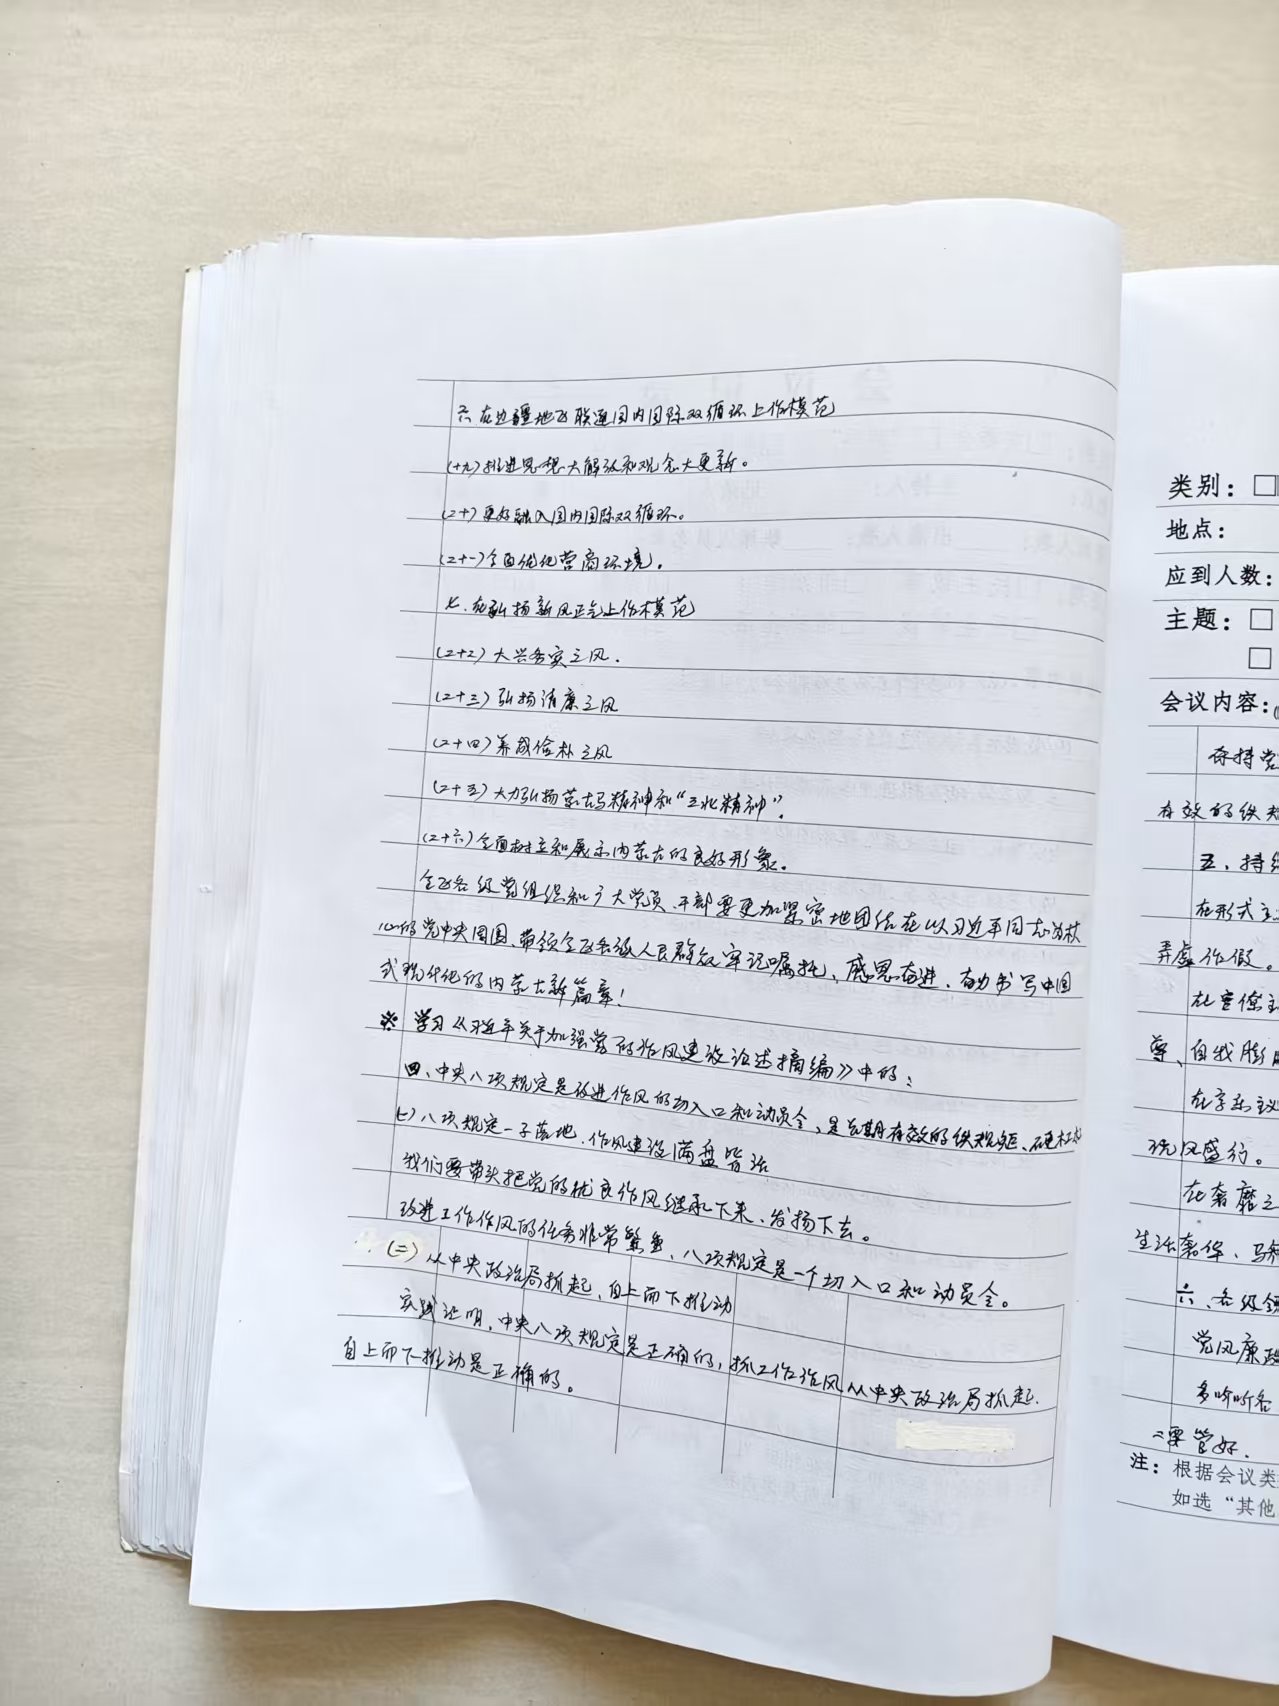 六 在边疆地区联通国内国际双循环上作模范
(十九)推进思想大解放和观念大更新。
(二十)更好融入国内国际双循环。
(二十一)全面优化营商环境。
七、在弘扬新风正气上作模范
(二十二)大兴务实之风.
(二十三)弘扬清廉之风
(二十四)养成俭朴之风
(二十五)大力弘扬蒙古马精神和“三北精神”。
(二十六)全面树立和展示内蒙古的良好形象。
全区各级党组织和广大党员、干部要更加紧密地团结在以习近平同志为核
心的党中央周围、带领全区各族人民群众牢记嘱托、感恩奋进、奋力书写中国
式现代化的内蒙古新篇章！
※ 学习《习近平关于加强党的作风建设论述摘编》中的：
四、中央八项规定是改进作风的切入口和动员令、是长期有效的铁规矩、硬杠杠
(一)八项规定一子落地、作风建设满盘皆活
我们要带头把党的优良作风继承下来、发扬下去。
改进工作作风的任务非常繁重、八项规定是一个切入口和动员令。
(二)从中央政治局抓起、自上而下推动
实践证明，中央八项规定是正确的，抓工作作风从中央政治局抓起.
自上而下推动是正确的。
类别：□
地点：
应到人数：
主题：□
□
会议内容：
有效的铁规
五、持续
在形式主
弄虚作假。
在官僚主
尊、自我膨
在享乐主义
玩风盛行。
在奢靡之
生活奢华、
六、各级领
党风廉政
要管好.
注：根据会议类
如选“其他